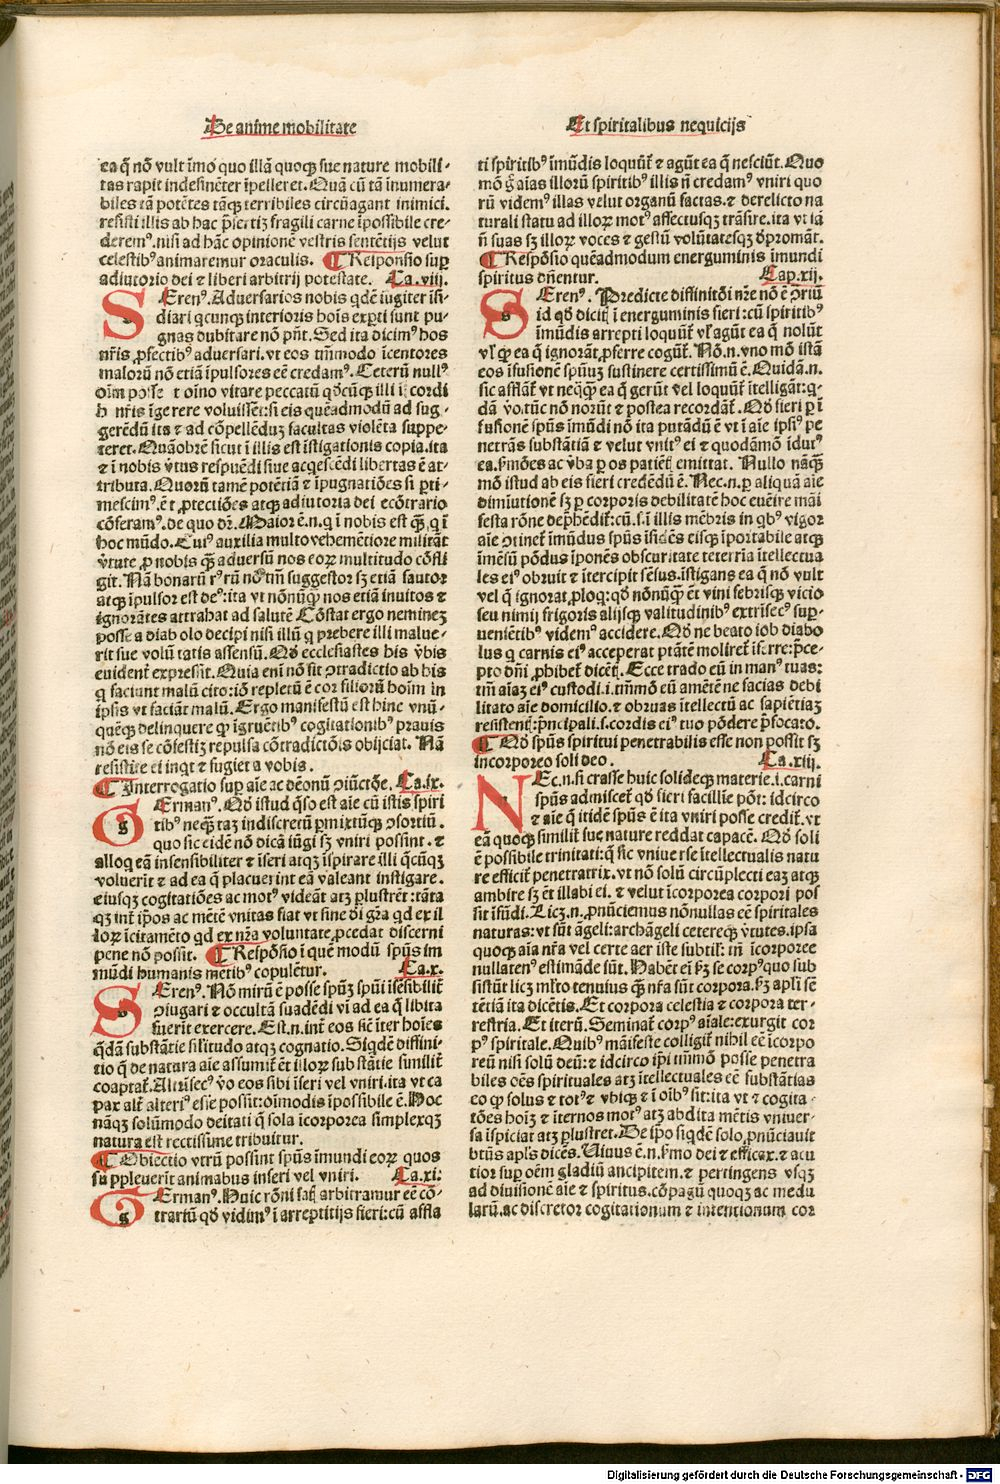 De anime mobilitate
ea q̄ nō vult īmo quo illā quoqꝫ sue nature mobili-
tas rapit indesinēter īpelleret. Quā cū tā inumera-
biles tā potētes tāqꝫ terribiles circūagant inimici.
resisti illis ab hac p̄sertiꝫ fragili carne īpossibile cre-
deremꝰ. nisi ad hāc opinionē vestris sentētijs velut
celestibꝰ animaremur oraculis. ¶ Responsio suꝑ
adiutorio dei ⁊ liberi arbitrij potestate. Ca. viij.
SErenꝰ. Aduersarios nobis qdē iugiter īsi-
diari qcunqꝫ interioris hoīs exꝑti sunt pu-
gnas dubitare nō pn̄t. Sed ita dicimꝰ hos
nr̄is ꝓfectibꝰ aduersari. vt eos tm̄modo īcentores
malorū nō etiā īpulsores eē credamꝰ. Ceterū nullꝰ
oīm posset oīno vitare peccatū qđcūqꝫ illi ī cordi
bꝰ nr̄is īgerere voluissēt: si eis quēadmodū ad sug-
gerēdū ita ⁊ ad cōpellēduꝫ facultas violēta suppe-
teret. Quāobrē sicut ī illis est īstigationis copia. ita
⁊ ī nobis v̄tus respuēdi siue acqescēdi libertas ē at-
tributa. Quorū tamē potētiā ⁊ īpugnatiōes si ꝑti-
mescimꝰ. ēt ꝓtectiōes atqꝫ adiutoria dei ecōtrario
cōferamꝰ. de quo dr̄. Maior ē.n. q ī nobis est qꝫ̄. q ī
hoc mūdo. Cuiꝰ auxilia multo vehemētiore militāt
v̄tute ꝓ nobis qꝫ̄ aduersū nos eoꝝ multitudo cōfli
git. Nā bonarū rerū nō tm̄ suggestor sꝫ etiā fautor
atqꝫ īpulsor est deꝰ: ita vt nōnūqꝫ̄ nos etiā inuitos ⁊
ignorātes attrahat ad salutē Cōstat ergo neminez
posse a diabolo decipi nisi illū q prebere illi malue-
rit sue volūtatis assensū. Qđ ecclesiastes his v̄bis
euident̄ expressit. Quia enī nō fit ꝯtradictio ab his
q faciunt malū cito: iō repletū ē cor filiorū hoīm in
ipsis vt faciāt malū. Ergo manifestū est hinc vnū-
quēqꝫ delinquere ꝙ īgruētibꝰ cogitationibꝰ prauis
nō eis se cōfestiꝫ repulsa cōtradictōis obijciat. Nā
resistite ei inqt ⁊ fugiet a vobis.
¶ Interrogatio suꝑ aīe ac dēonū ꝯiūctōe. Ca. ix.
GErmanꝰ. Qđ istud q̄so est aīe cū istis spiri
tibꝰ nequꝫ taꝫ indiscretū ꝑmixtūqꝫ ꝯsortiū.
quo sic eidē nō dicā iūgi sꝫ vniri possint. ⁊
alloq eā insensibiliter ⁊ īseri atqꝫ īspirare illi qcūqꝫ
voluerīt ⁊ ad ea q̄ placuerint eā valeant instigare.
eiusqꝫ cogitatiōes ac motꝰ videāt atꝫ ꝑlustrēt: tāta
qꝫ int̄ ip̄os ac mētē vnitas fiat vt sine di gr̄a qd ex il
loꝝ īcitamēto qd ex nr̄a voluntate ꝓcedat discerni
pene nō possit. ¶ Respōsio ī que modū spūs im
mūdi humanis mētibꝰ copulētur. Ca. x.
SErenꝰ. Nō mirū ē posse spūꝫ spūi īsēsibilit̄
ꝯiugari ⁊ occultā suadēdi vī ad ea q̄ libita
fuerit exercere. Est.n. int̄ eos siē iter hoīes
q̄dā substātie silītudo atqꝫ cognatio. Siqdē diffini-
tio q̄ de natura aīe assumīt̄ ēt illoꝝ substātie similit̄
coaptat̄. Altrīsecꝰ v̄o eos sibi īseri vel vniri. ita vt ca
pax alt̄ alteriꝰ esse possit: oīmodis īpossibile ē. Hoc
nāqꝫ solūmodo deitati q̄ sola īcorporea simplexqꝫ
natura est rectissime tribuitur.
¶ Obiectio vtrū possint spūs īmundi eoꝝ quos
suppleuerīt animabus inseri vel vniri. Ca. xi:
GErmanꝰ. Huic rōni satꝭ arbitramur eē cō-
trariū qđ vidimꝰ ī arreptitijs fieri: cū affla
Et spiritalibus nequicijs
ti spiritibꝰ īmūdis loquūt̄ ⁊ agūt ea q̄ nesciūt. Quo
mō g̊ aīas illorū spiritibꝰ illis n̄ credamꝰ vniri quo
rū videmꝰ illas velut organū factas. ⁊ derelicto na
turali statu ad illoꝝ motꝰ affectusqꝫ trāsire. ita vt iā
n̄ suas sꝫ illoꝝ voces ⁊ gestū volūtatesqꝫ dꝓmāt.
¶ Respōsio quēadmodum energuminis īmundi
spiritus dn̄entur. Cap. xij.
SErenꝰ. Predicte diffinitōi nr̄e nō ē ꝯriū
id qđ dicitꝭ ī energuminis fieri: cū spiritibꝰ
īmūdis arrepti loquūt̄ vl̓ agūt ea q̄ nolūt
vl̓ qꝫ ea q̄ ignorāt ꝓferre cogūt̄. Nō.n. vno mō istā
eos īfusionē spūuꝫ sustinere certissimū ē. Quidā.n.
sic afflāt̄ vt neqꝙ̄ ea q̄ gerūt vel loquūt̄ ītelligāt: q-
dā vo tūc nō norūt ⁊ postea recordāt̄. Qđ fieri ꝑ ī
fusionē spūs īmūdi nō ita putādū ē vt ī aīe ipsiꝰ pe
netrās substātiā ⁊ velut vnitꝰ ei ⁊ quodāmō īdutꝰ
ea. s̄mōes ac v̄ba ꝑ os patiētꝭ emittat. Nullo nāqꝫ̄
mō istud ab eis fieri credēdū ē. Nec.n. ꝑ aliquā aīe
dimīutionē sꝫ ꝑ corporis debilitatē hoc euēire māi
festa rōne dep̄hēdit̄: cū. s. ī illis mēbris in qbꝰ vigor
aīe ꝯtinet̄ īmūdus spūs īsidēs eisqꝫ īportabile atqꝫ
īmēsū pōdus īponēs obscuritate teterria ītellectua
les eiꝰ obruit ⁊ ītercipit sēsus. īstigans ea q̄ nō vult
vel q̄ ignorat ꝓloq: qđ nōnūqꝫ̄ ēt vini febrisqꝫ vicio
seu nimij frigoris alijsqꝫ valitudinibꝰ extrīsecꝰ suꝑ-
ueniētibꝰ videmꝰ accidere. Qđ ne beato iob diabo
lus q carnis eiꝰ acceperat ptātē moliret̄ īferre: p̄ce-
pto dn̄i ꝓhibet̄ dicētꝭ. Ecce trado eū in manꝰ tuas:
tm̄ aīaꝫ eiꝰ custodi. i. tm̄mō eū amētē ne facias debi
litato aīe domicilio. ⁊ obruas ītellectū ac sapiētiaꝫ
resistentꝭ: p̄ncipali. s. cordis eiꝰ tuo pōdere p̄focato.
¶ Qđ spūs spiritui penetrabilis esse non possit sꝫ
incorporeo soli deo. Ca. xiij.
NEc.n. si crasse huic solideqꝫ materie. i. carni
spūs admiscet̄ qđ fieri facillīe pōt: idcirco
⁊ aīe q̄ itidē spūs ē ita vniri posse credit̄. vt
eā quoqꝫ similit̄ sue nature reddat capacē. Qđ soli
ē possibile trinitati: q̄ sic vniuerse ītellectualis natu
re efficit̄ penetratrix. vt nō solū circūplecti eaꝫ atqꝫ
ambire sꝫ ēt illabi ei. ⁊ velut īcorporea corpori pos
sit īfūdi. Licꝫ.n. ꝓnūciemus nōnullas eē spiritales
naturas: vt sūt āgeli: archāgeli cetereqꝫ v̄tutes. ipsa
quoqꝫ aīa nr̄a vel certe aer iste subtilꝭ: tn̄ īcorporee
nullatenꝰ estimāde sūt. Habēt ei ẜꝫ se corpꝰ quo sub
sistūt licꝫ ml̓to tenuius qꝫ̄ nr̄a sūt corpora. ẜꝫ apl̓i sē
tētiā ita dicētis. Et corpora celestia ⁊ corpora ter-
restria. Et iterū. Seminat̄ corpꝰ aīale: exurgit cor
pꝰ spiritale. Quibꝰ māifeste colligit̄ nihil eē īcorpo
reū nisi solū deū: ⁊ idcirco ip̄i tm̄mō posse penetra
biles oēs spirituales atꝫ ītellectuales eē substātias
eo ꝙ solus ⁊ totꝰ ⁊ vbiqꝫ ⁊ ī oībꝰ sit: ita vt ⁊ cogita-
tōes hoīꝫ ⁊ īternos motꝰ atꝫ abdita mētis vniuer-
sa īspiciat atꝫ ꝑlustret. De ip̄o siqdē solo ꝓnūciauit
btūs apl̓s dicēs. Uiuus ē.n. s̄mo dei ⁊ efficax. ⁊ acu
tior suꝑ oēm gladiū ancipitem. ⁊ pertingens vsqꝫ
ad diuisionē aīe ⁊ spiritus. cōpagū quoqꝫ ac medu
larū. ac discretor cogitationum ⁊ intentionum cor
Digitalisierung gefördert durch die Deutsche Forschungsgemeinschaft - DFG